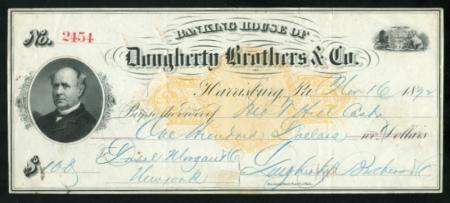 BANKING HOUSE OF
No. 2454
Dougherty Brothers & Co.
Harrisburg, Pa. Nov 16 1892
Pay to the order of Cash
One Hundred Dollars Dollars
$ 100
Drexel Morgan & Co
New York Dougherty Brothers & Co